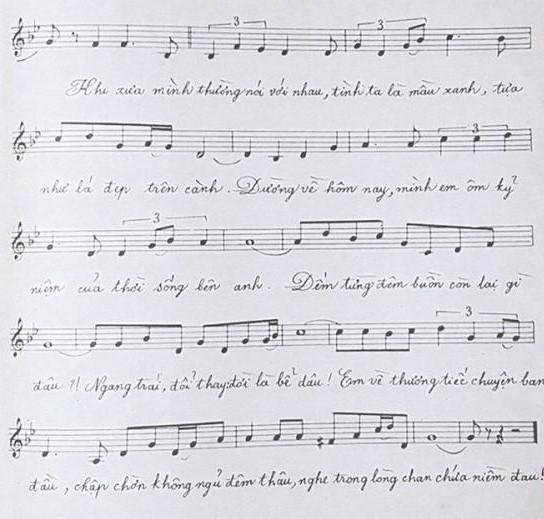 3 3
Khi xưa mình thường nói với nhau, tình ta là mầu xanh, tựa
3
như lá đẹp trên cành. Đường về hôm nay, mình em ôm kỷ
3
niệm của thời sống bên anh. Đếm từng đêm buồn còn lại gì
3
đâu?! Ngang trái, đổi thay: đời là bể dâu! Em về thương tiếc chuyện ban
đầu, chập chờn không ngủ đêm thâu, nghe trong lòng chan chứa niềm đau!